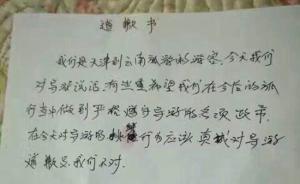 道歉书
我们是天津到云南旅游的游客,今天我们
对导游说话有过 希望我们在今后的旅
行当中做到严格遵守导游的各项 
在今天对导游的 行为应 真诚对导游
道歉是我们不对.